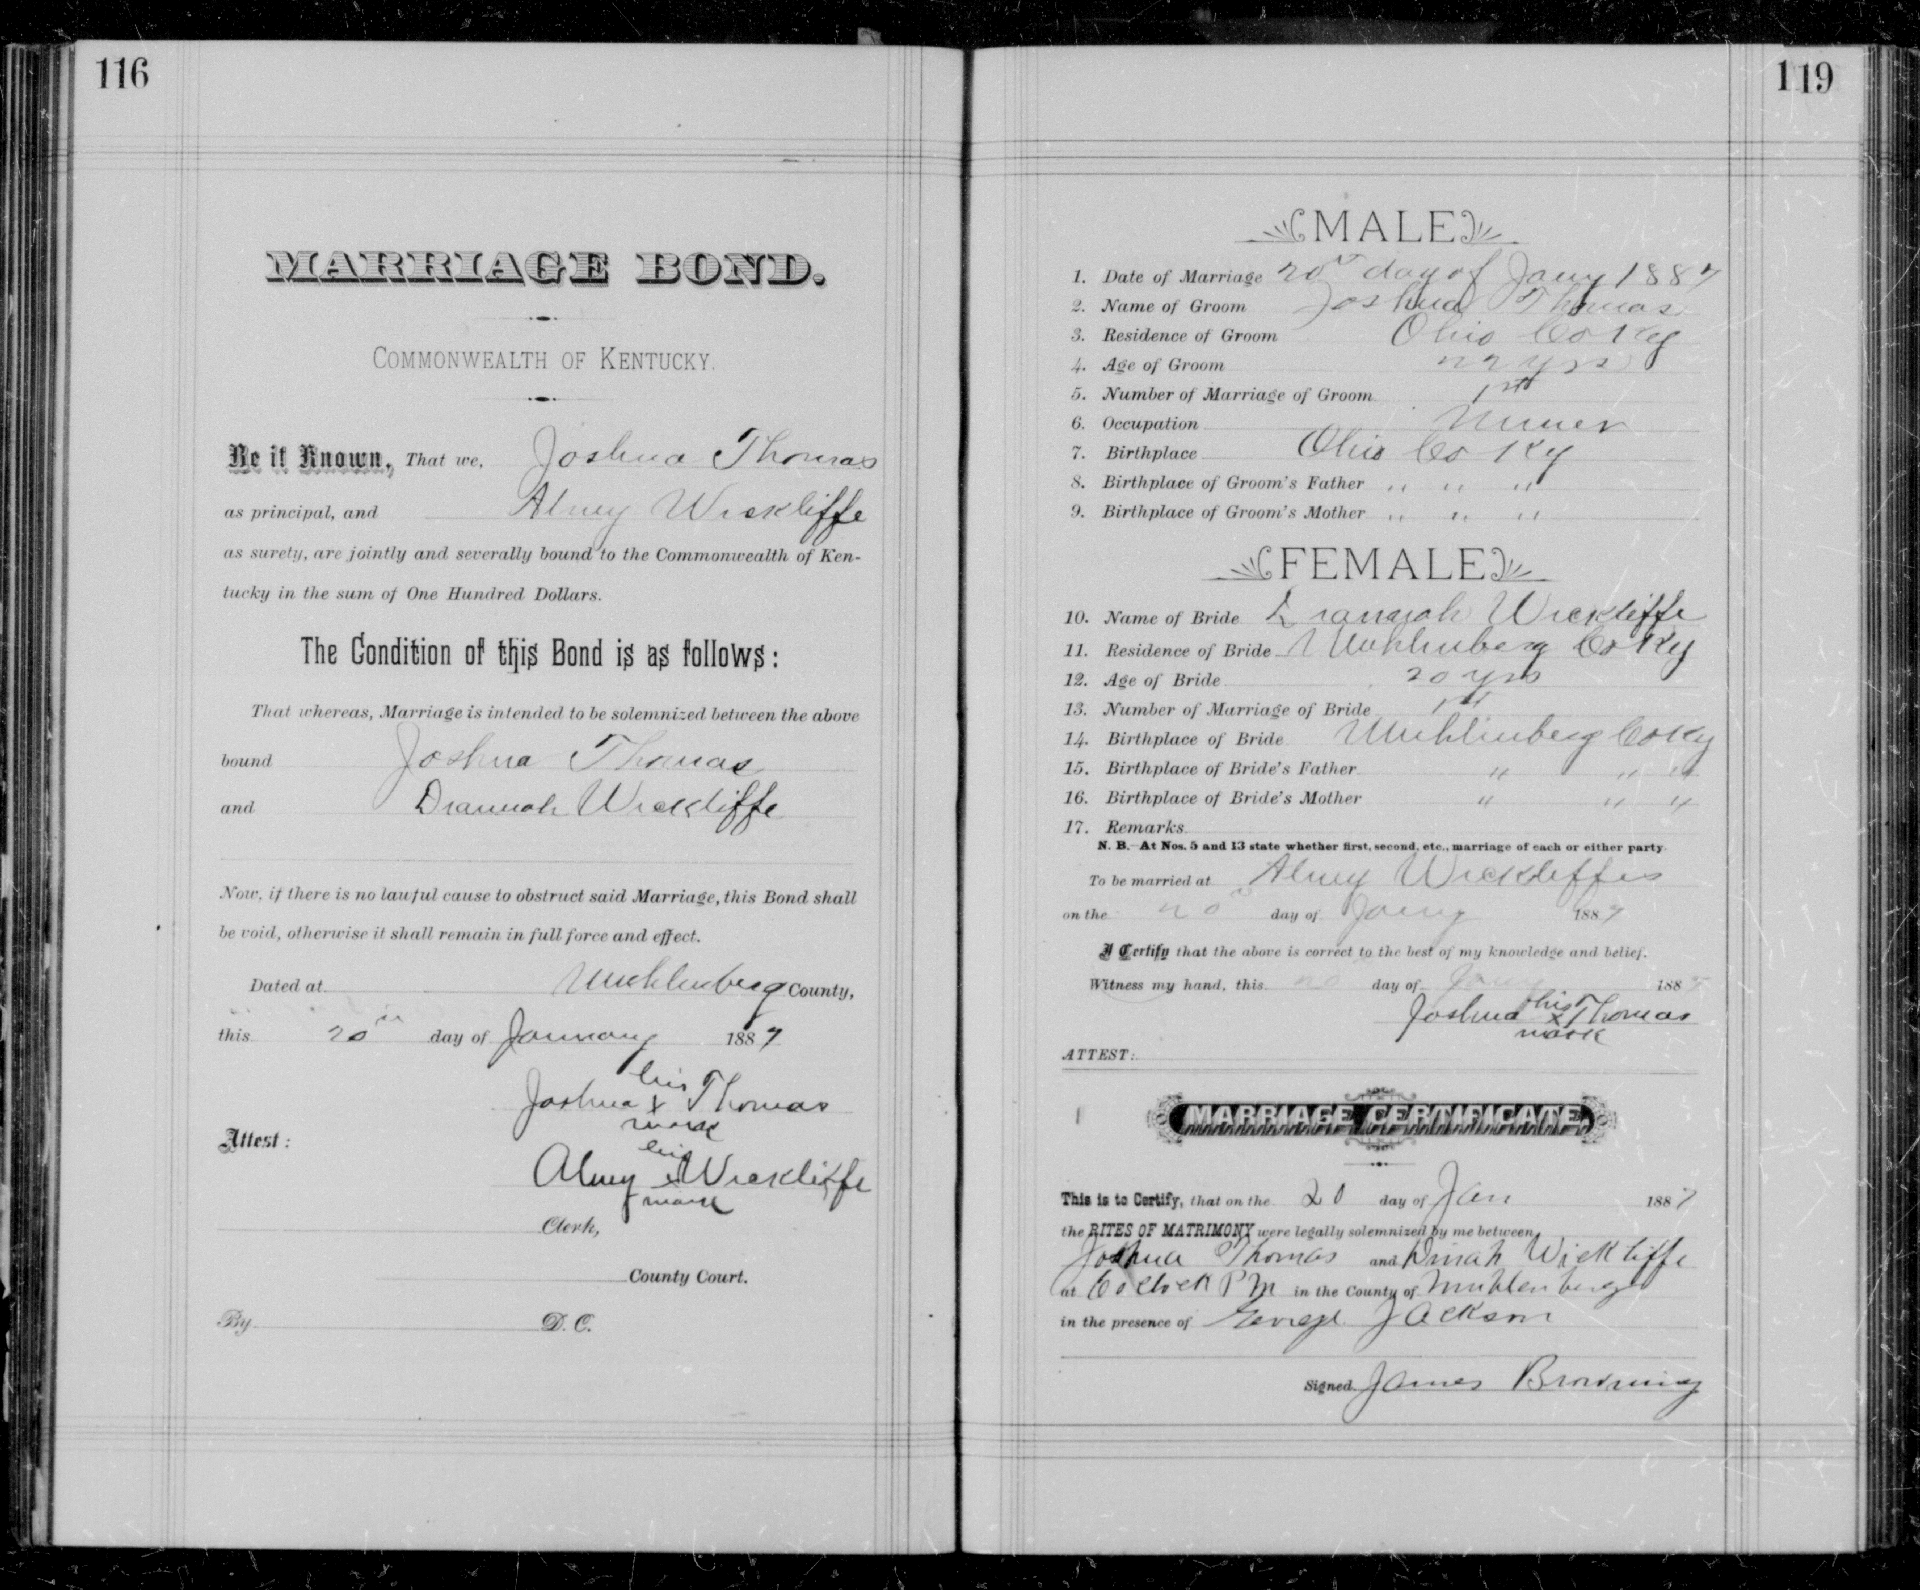 116
MARRIAGE BOND.
COMMONWEALTH OF KENTUCKY.
Be it Known, That we, Joshua Thomas
as principal, and Alney Wickliffe
as surety, are jointly and severally bound to the Commonwealth of Ken-
tucky in the sum of One Hundred Dollars.
The Condition of this Bond is as follows:
That whereas, Marriage is intended to be solemnized between the above
bound Joshua Thomas
and Diannah Wickliffe
Now, if there is no lawful cause to obstruct said Marriage, this Bond shall
be void, otherwise it shall remain in full force and effect.
Dated at Muhlenberg County,
this 20th day of January 1887
his
Joshua x Thomas
mark
Attest:
his
Alney x Wickliffe
mark
Clerk,
County Court.
By D. C.
119
MALE
1. Date of Marriage 20th day of Jany 1887
2. Name of Groom Joshua Thomas
3. Residence of Groom Ohio Co Ky
4. Age of Groom 22 yrs
5. Number of Marriage of Groom 1st
6. Occupation Miner
7. Birthplace Ohio Co Ky
8. Birthplace of Groom's Father " " "
9. Birthplace of Groom's Mother " " "
FEMALE
10. Name of Bride Wickliffe
11. Residence of Bride Muhlenberg Co Ky
12. Age of Bride 20 yrs
13. Number of Marriage of Bride 1st
14. Birthplace of Bride Muhlenberg Co Ky
15. Birthplace of Bride's Father " " "
16. Birthplace of Bride's Mother " " "
17. Remarks
N. B.—At Nos. 5 and 13 state whether first, second, etc., marriage of each or either party.
To be married at Alney Wickliffes
on the 20th day of Jany 1887
I Certify that the above is correct to the best of my knowledge and belief.
Witness my hand, this 20 day of Jany 188
his
Joshua x Thomas
mark
ATTEST:
MARRIAGE CERTIFICATE.
This is to Certify, that on the 20 day of Jan 1887
the RITES OF MATRIMONY were legally solemnized by me between
Joshua Thomas and Dinah Wickliffe
at 6 oclock P M in the County of Muhlenberg
in the presence of George Jackson
Signed James Browning